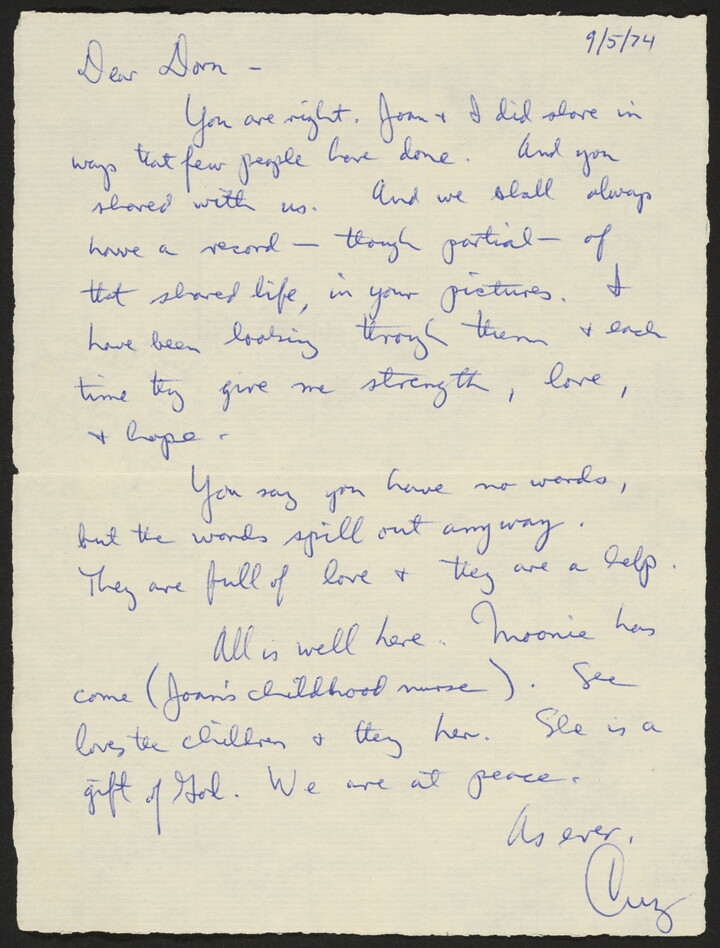 9/5/74
Dear Dorn -
You are right. Joan & I did share in
ways that few people have done. And you
shared with us. And we shall always
have a record — though partial — of
that shared life, in your pictures. I
have been looking through them & each
time they give me strength, love,
& hope.
You say you have no words,
but the words spill out anyway.
They are full of love & they are a help.
All is well here. Moonie has
come (Joan's childhood nurse). She
loves the children & they her. She is a
gift of God. We are at peace.
As ever,